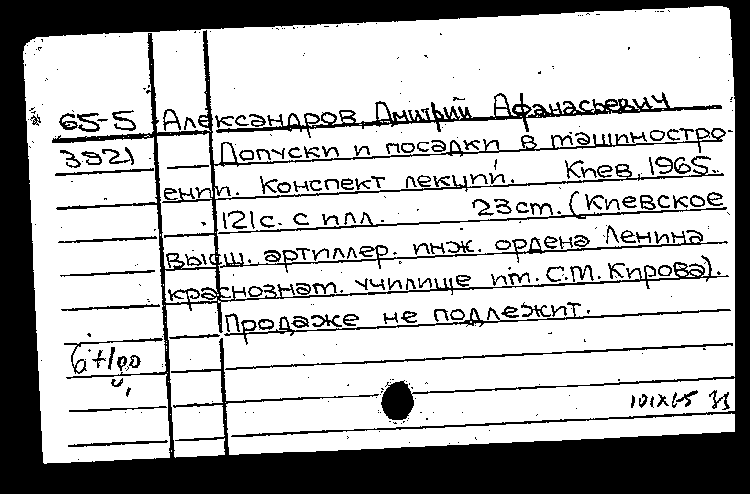 65-5 Александров, Дмитрий Афанасьевич
3921 Допуски и посадки в машиностро-
ении. Конспект лекций. Киев, 1965.
121 с. с илл. 23 см. (Киевское
высш. артиллер. инж. ордена Ленина
краснознам. училище им. С.М. Кирова).
Продаже не подлежит.